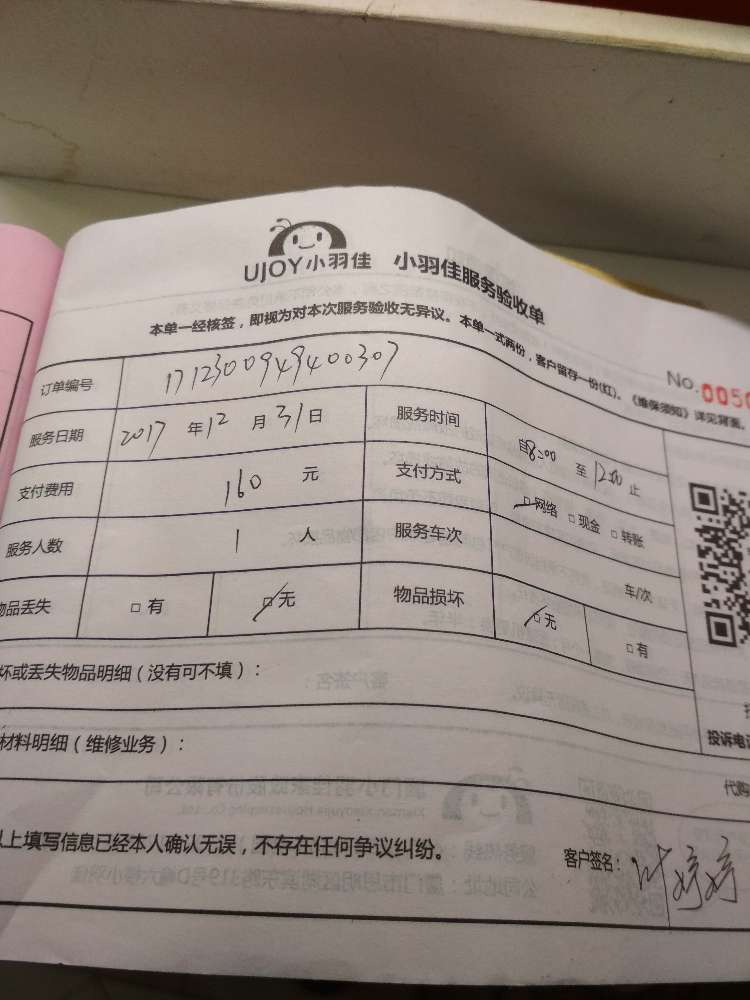 UJOY小羽佳 小羽佳服务验收单
本单一经核签，即视为对本次服务验收无异议。本单一式两份，客户留存一份(红)。《维保须知》详见背面。
No.0050
订单编号 1712300949400307
服务日期 2017 年 12 月 31 日 服务时间 自8:00 至 12:00 止
支付费用 160 元 支付方式 □网络 □现金 □转账
服务人数 1 人 服务车次 车/次
物品丢失 □有 □无 物品损坏 □无 □有
坏或丢失物品明细（没有可不填）：
投诉电话
材料明细（维修业务）：
代购
以上填写信息已经本人确认无误，不存在任何争议纠纷。 客户签名：叶婷婷